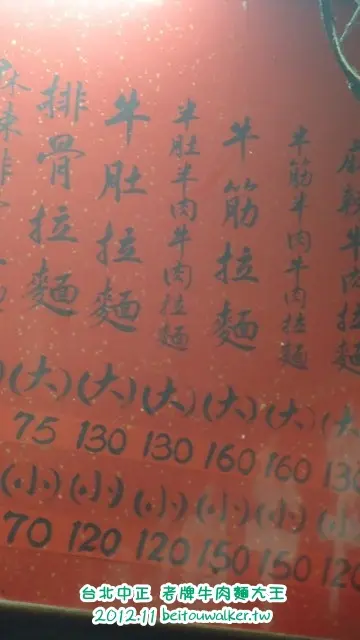 牛肉拉麵
半筋半肉牛肉拉麵
牛筋拉麵
半肚半肉牛肉拉麵
牛肚拉麵
排骨拉麵
(大) (大) (大) (大) (大) (大
75 130 130 160 160 130
(小) (小) (小) (小) (小) (小
70 120 120 150 150 120
台北中正 老牌牛肉麵大王
2012.11 beitouwalker.tw